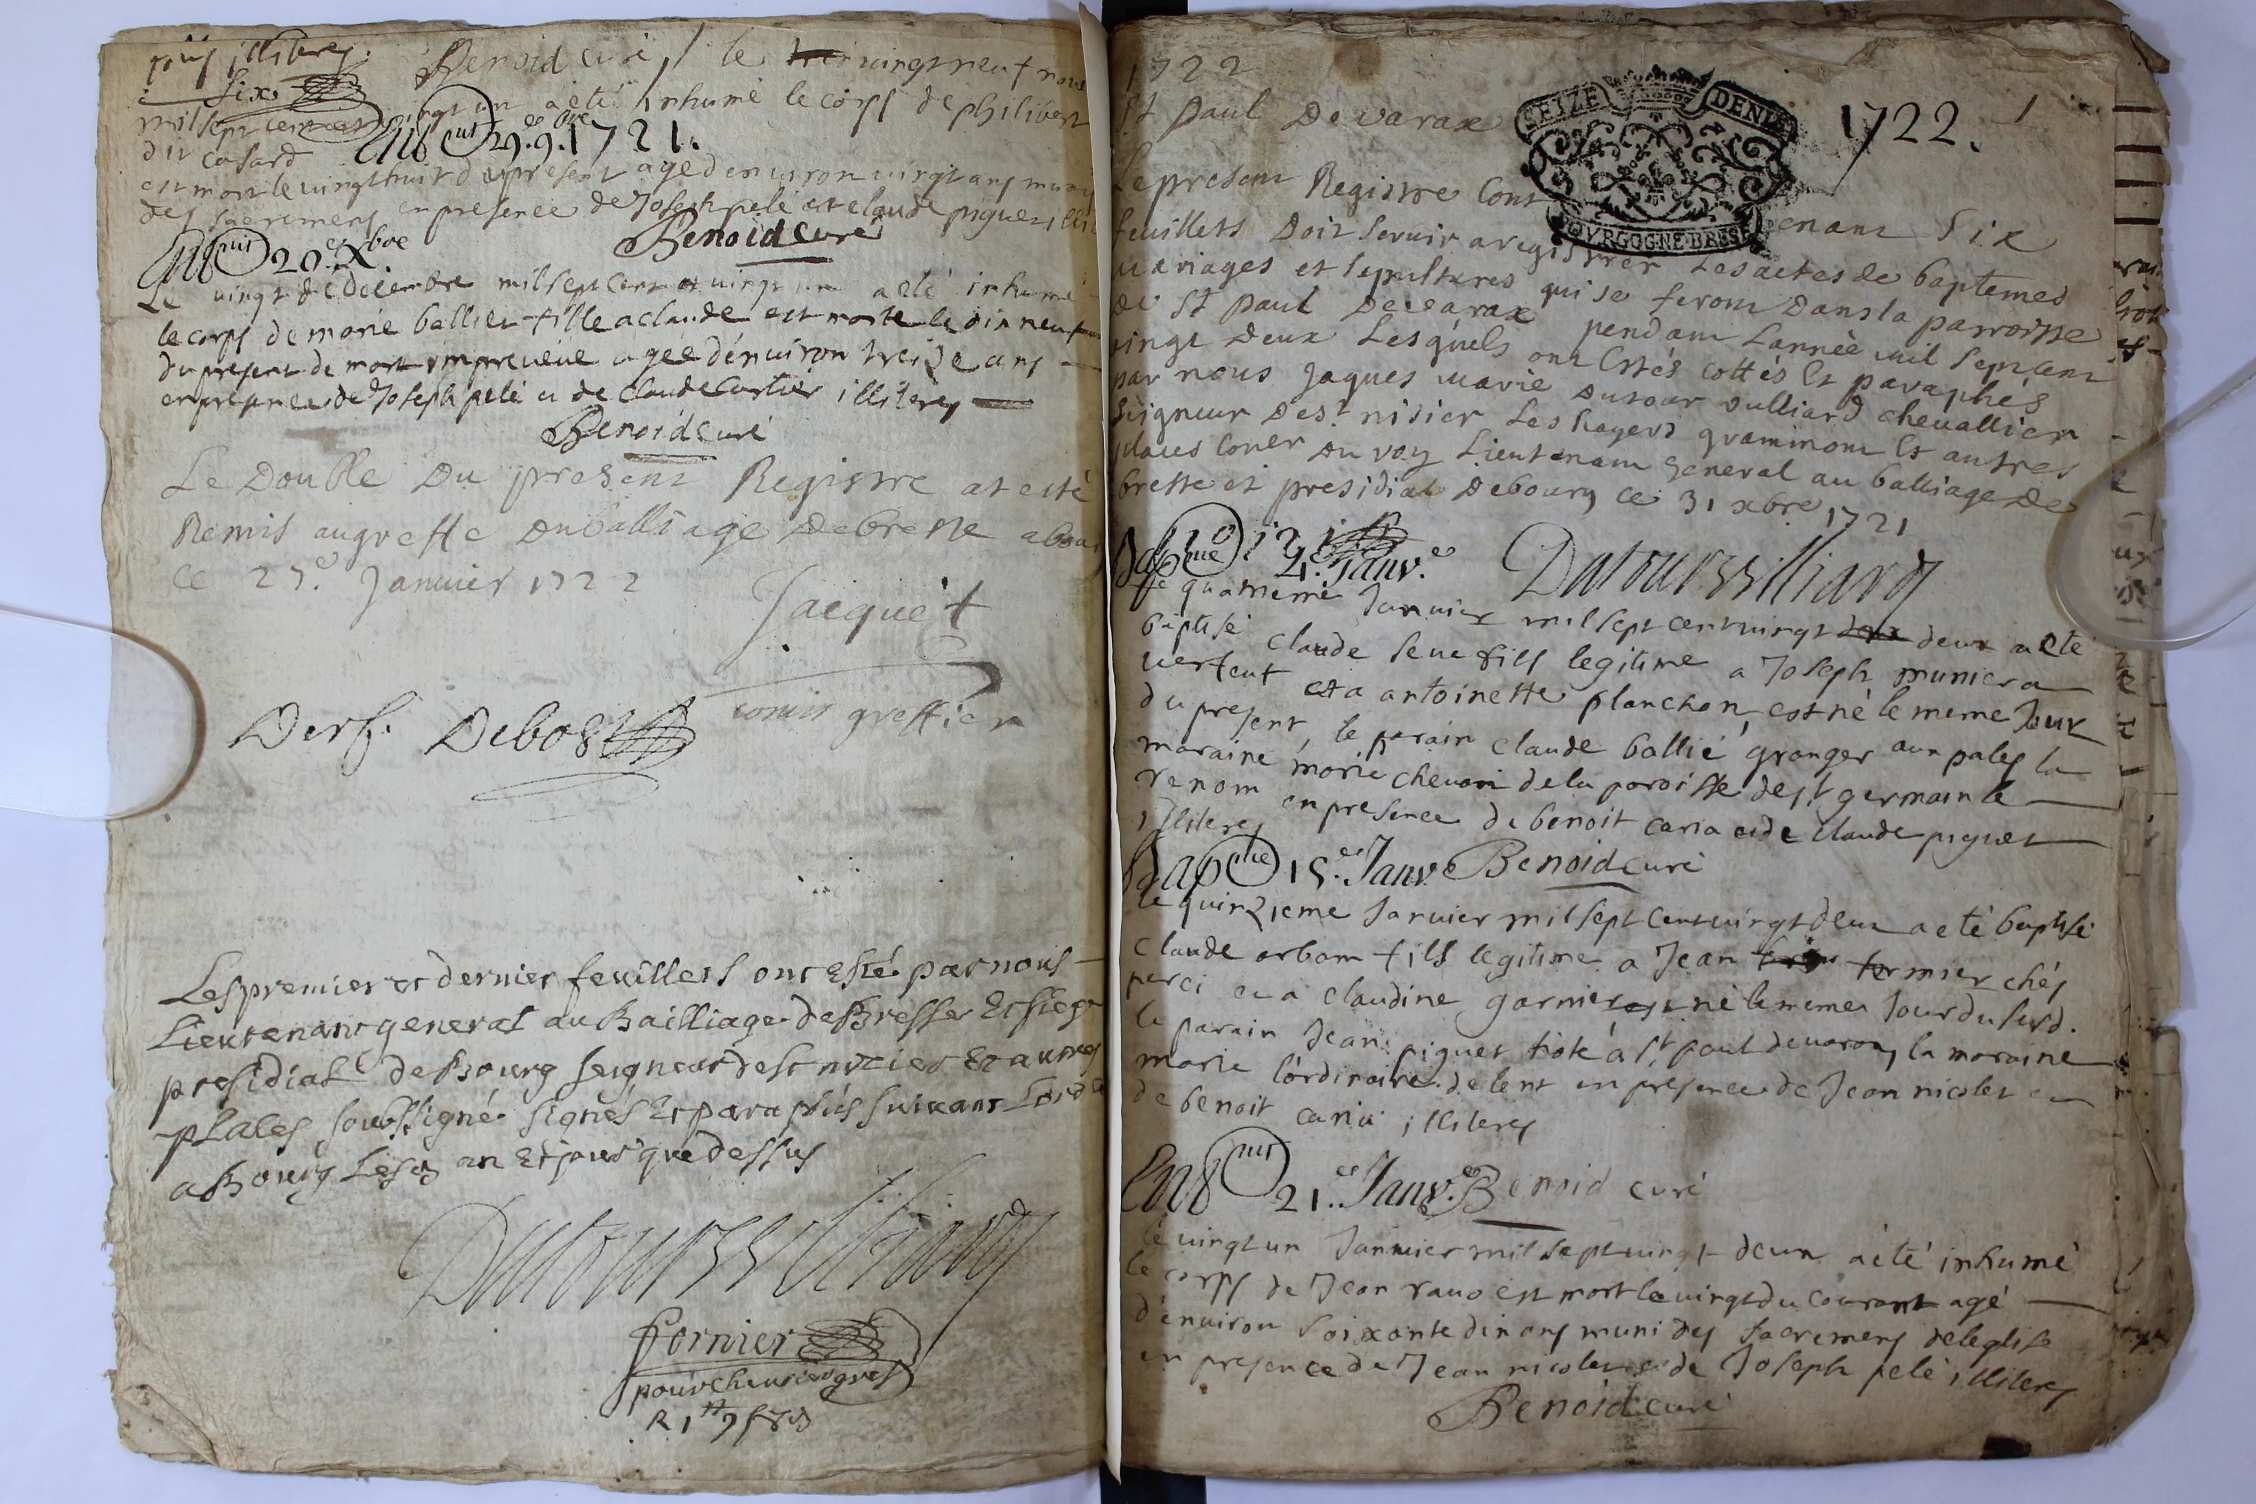 illiteres.
six
Benoid curé / le vingt neuf nove
mil sept cent vingt un a eté inhumé le corps de philibert
dit casard
Ent 29.e 9.bre 1721.
est mort le vingt huit du present agé d'environ vingt ans muny
des sacremens en presence de Joseph pelé et claude piguet illit
Benoid curé
Ent 20.e Xbre
Le vingt de decembre mil sept cent et vingt un a eté inhumé
le corps de marie ballier fille a claude est morte le dix neuf
du present de mort impreveüe agée d'environ treize ans
en presence de Joseph pelé et de claude Cartier illiteres
Benoid curé
Le Double Du present Registre at esté
Remis au greffe du balliage de bresse a bourg
ce 27.e Janvier 1722
Jacquet
comis greffier
Derf. Debost
Les premier et dernier feuillets ont esté par nous
Lieutenant general au Bailliage de Bresse Et siege
presidial de Bourg seigneur de st nizier Et autres
places soubsigné signés Et paraphés suivant Lord
a Bourg Les an Et jour que dessus
Dutour Vulliard
fornier
R 1
1722
St paul De varax
SEIZE DENIE
BOVRGOGNE BRESSE
1722. 1
Le present Registre Contenant Six
feuillets Doit servir a registrer Les actes de baptemes
mariages et sepultures qui se feront Dans la parroisse
de St paul Devarax pendant Lannée mil sept cent
vingt Deux Lesquels ont Estés cottés Et paraphés
par nous Jaques marie Dutour vulliard chevallier
seigneur De st nisier Les hayers graminom Et autres
places coner Du roy Lieutenant general au balliage De
bresse et presidial De bourg ce 31 xbre 1721
Dutour Vulliard
Bap.me 4.e Janv.e
le quatrieme Janvier mil sept cent vingt deux a eté
baptisé claude seve fils legitime a Joseph munier a
verfeut et a antoinette planchon, est né le meme Jour
du present, le parain claude ballié granger aux pales la
maraine marie chevan de la paroisse de st germain le
renom en presence de benoit caria et de claude piguet
illiteres
Bap.me 15.e Janv.e Benoid curé
le quinzieme Janvier mil sept cent vingt deux a eté baptisé
claude arban fils legitime a Jean fermier chés
perci et a claudine garnier est né le meme Jour du susd.
le parain Jean piguet à st paul de varax, la maraine
marie l'ordinaire de lent en presence de Jean nicolet et
de benoit caria illiteres
Ent 21.e Janv.e Benoid curé
le vingt un Janvier mil sept vingt deux a eté inhumé
le corps de Jean ravo est mort le vingt du courant agé
d'environ soixante dix ans muni des sacremens de leglise
en presence de Jean nicolet et de Joseph pelé illiteres
Benoid curé